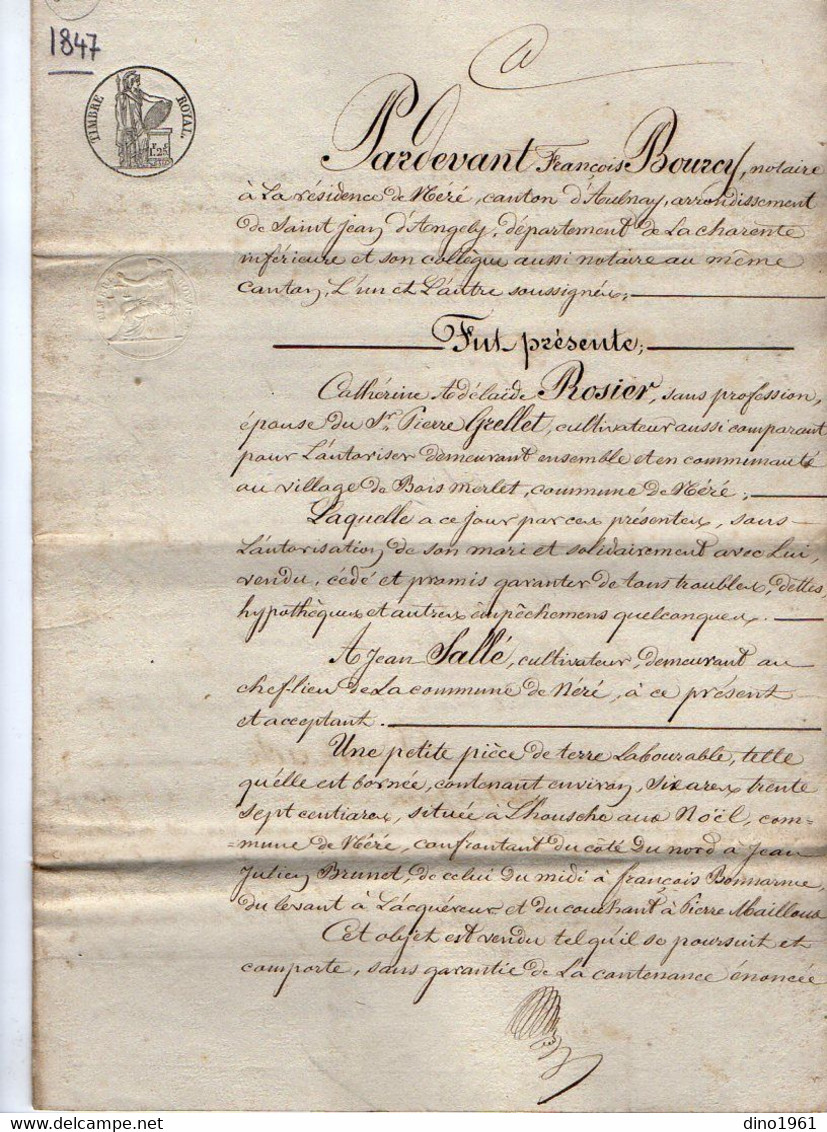 1847
TIMBRE ROYAL.
1F.25c
Pardevant François Bourcy, notaire
à La résidence de Néré, canton d'Aulnay, arrondissement
de Saint Jean d'Angely, département de La charente
inférieure et son collègue aussi notaire au même
canton, L'un et L'autre soussignés,
Fut présente;
Cathérine Adélaïde Rosier, sans profession,
épouse du Sr. Pierre Grellet, cultivateur aussi comparant
pour L'autoriser demeurant ensemble et en communauté
au village de Bois merlet, commune de Néré;
Laquelle a ce jour par ces présentes, sous
L'autorisation de son mari et solidairement avec Lui,
vendu, cédé et promis garanter de tous troubles, dettes,
hypothèques et autres êmpêchemens quelconques.
A Jean Sallé, cultivateur, demeurant au
chef-lieu de La commune de Néré, à ce présent
et acceptant.
Une petite pièce de terre Labourable, telle
qu'elle est bornée, contenant environ, six ares trente
sept centiares, située à L'housche aux Noël, com=
=mune de Néré, confrontant du côté du nord à Jean
Julien Brunet, de celui du midi à françois Bonnarme,
du levant à L'acquéreur et du couchant à Pierre Mailloux
Cet objet est vendu tel qu'il se poursuit et
comporte, sans garantie de La contenance énoncée
dino1961